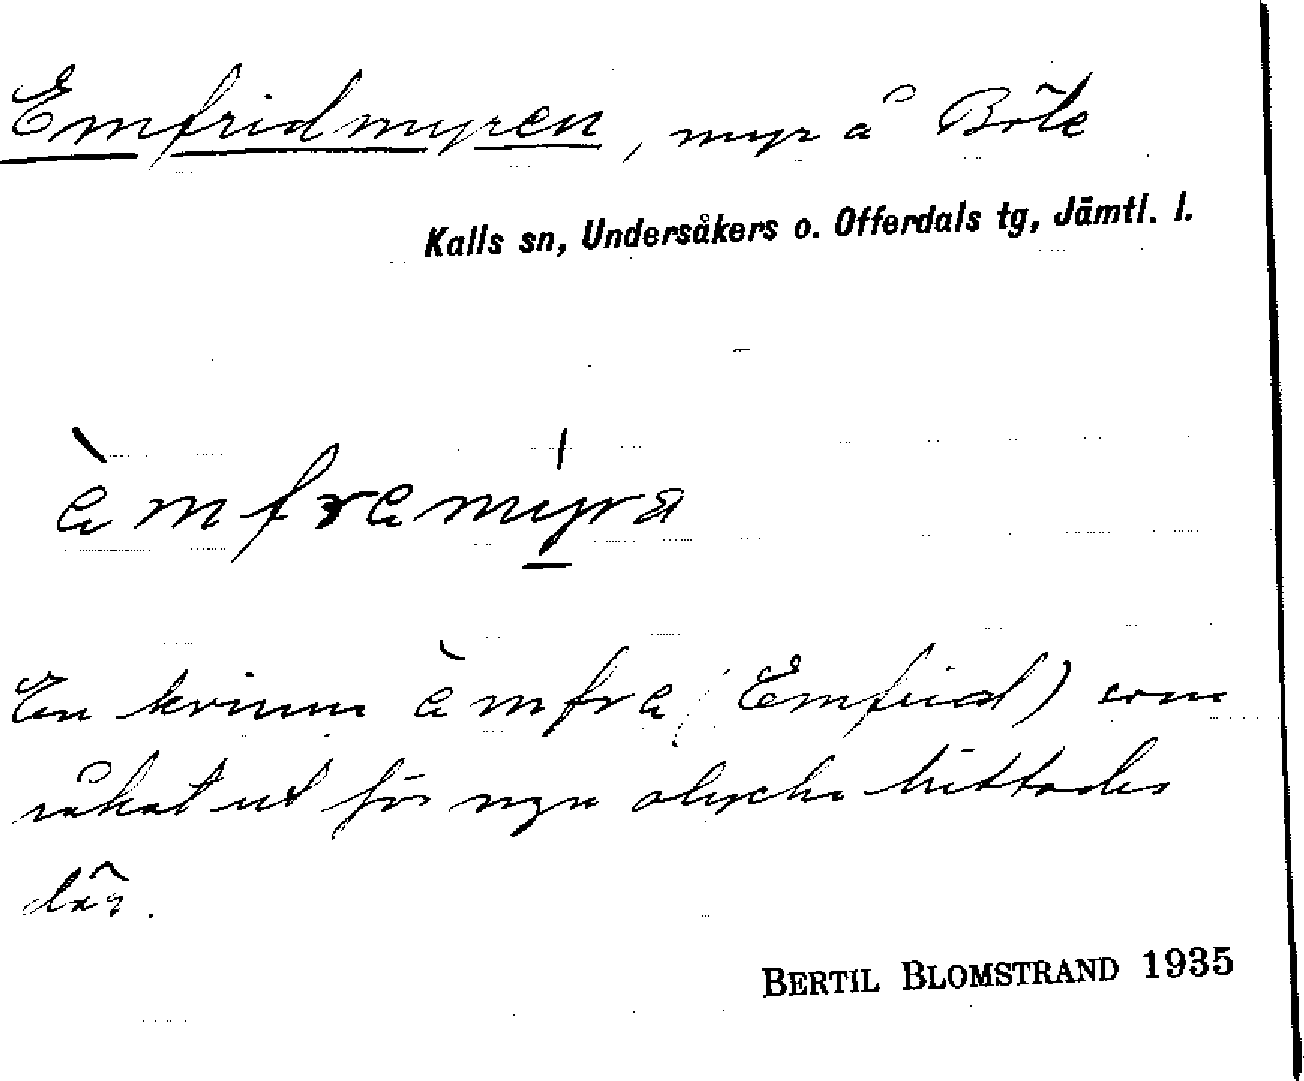 Emfridmyren, myr å Böle
Kalls sn, Undersåkers o. Offerdals tg, Jämtl. l.
èmfremyra
En kvinna èmfre (Emfrid) som
råkat ut för ngn olycka hittades
där.
BERTIL BLOMSTRAND 1935